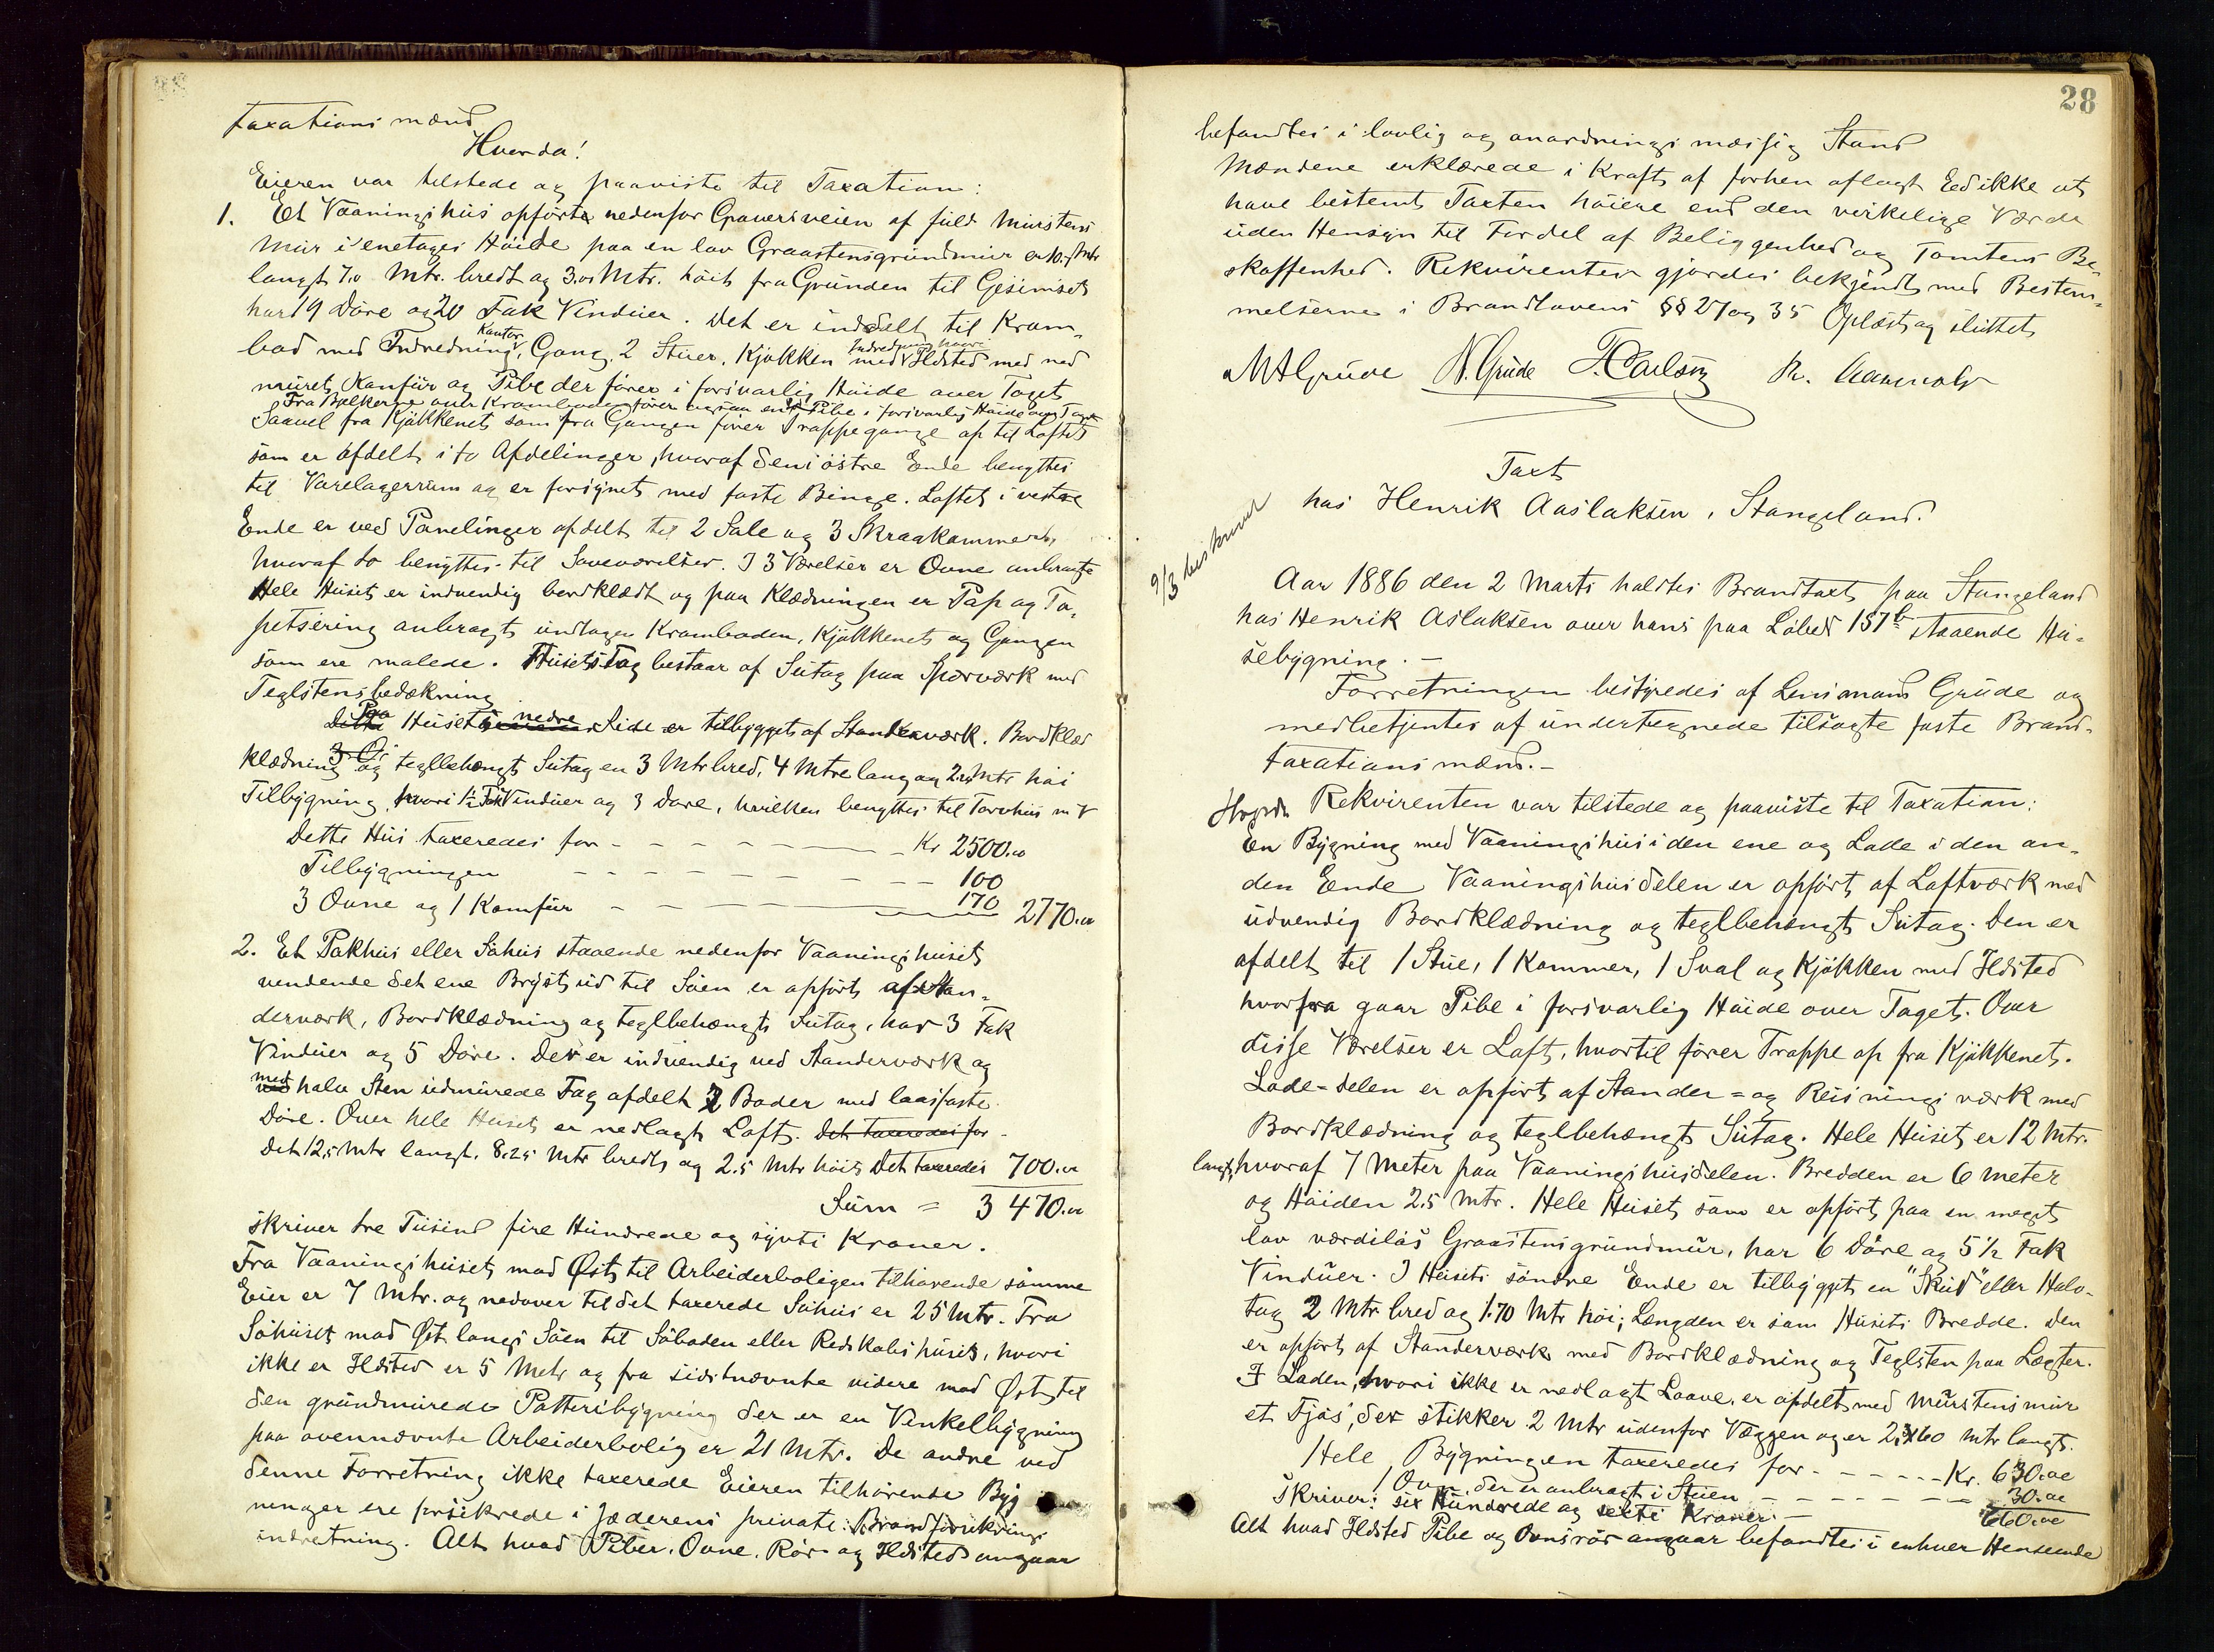 taxationsmænd
Hvorda!
Eieren var tilstede og paaviste til Taxation:
1. Et Vaaningshus opført nedenfor Graversveien af fuld Murstens
Mur i enetages Høide paa en lav Graastensgrundmur er Mtr
langt 7.0 Mtr. bredt og 3.0 Mtr. høit fra Grunden til Gesimset
har 19 Døre og 20 Fak Vinduer. Det er inddelt til Kram-
bod med Indredning, Kontor, Gang, 2 Stuer, Kjøkken med Indredning hvori Ildsted med ned
muret Komfür og Pibe der fører i forsvarlig Høide over Taget
Fra Bælkerne over Kramboden fører ogsaa en Pibe i forsvarlig Høide over Taget
Saavel fra Kjøkkenet som fra Gangen fører Trappegange op til Loftet
som er afdelt i to Afdelinger, hvoraf den i østre Ende benyttes
til Varelagerrum og er forsynet med faste Binge. Loftet i vestre
Ende er ved Panelinger afdelt til 2 Sale og 3 Skraakammers,
hvoraf to benyttes til Soveværelser. I 3 Værelser er Ovne anbragte
Hele Huset er indvendig bordklædt og paa Klædningen er Pap og Ta-
petsering anbragt undtagen Kramboden, Kjøkkenet og Gangen
som ere malede. Husets Tag bestaar af Sutag paa Sperværk med
Teglstensbedækning
Paa Husets nedre Side er tilbygget af Standerværk. Bordklæd
klædning og teglbehængt Sutag en 3 Mtr bred, 4 Mtre lang og 2.4 Mtr høi
Tilbygning, hvori 1½ Fak Vinduer og 3 Døre, hvilken benyttes til Torvhus m V
Dette Hus taxeredes for - - - - - - Kr 2500.00
Tilbygningen - - - - - - - - 100
3 Ovne og 1 Komfür - - - - 170 2770.00
2. Et Pakhus eller Søhus staaende nedenfor Vaaningshuset
vendende det ene Bryst ud til Søen er opført af Stan-
derværk, Bordklædning og teglbehængt Sutag, har 3 Fak
Vinduer og 5 Døre. Det er indvendig ved Standerværk og
med halv Sten udmurede Fag afdelt 2 Boder med laasfaste
Døre. Over hele Huset er nedlagt Loft. Det taxeredes for
Det 12,5 Mtr langt, 8.25 Mtr bredt og 2.5 Mtr høit Det taxeredes 700.00
Sum = 3 470.00
skriver tre Tusind fire Hundrede og sytti Kroner.
Fra Vaaningshuset mod Øst til Arbeiderboligen tilhørende samme
Eier er 7 Mtr. og nedover til det taxerede Søhus er 25 Mtr. Fra
Søhuset mod Øst langs Søen til Søboden eller Redskabshuset, hvori
ikke er Ildsted er 5 Metr og fra sidstnævnte videre mod Øst til
den grundmurede Potteribygning der er en Vinkelbygning
paa ovennævnte Arbeiderbolig er 21 Mtr. De andre ved
denne Forretning ikke taxerede Eieren tilhørende Byg
ninger ere forsikrede i Jæderens private Brandforsikrings
indretning. Alt hvad Piber, Ovne, Rør og Ildsted angaar
28
befandtes i lovlig og anordningsmæssig Stand
Mændene erklærede i Kraft af forhen aflagt Eed ikke at
have bestemt Taxten høiere end den virkelige Værdi
uden Hensyn til Fordel af Beliggenhed og Tomtens Be-
skaffenhed. Rekvirenten gjordes bekjendt med Bestem-
melserne i Brandlovens §§ 27 og 35 Oplæst og sluttet
MAGrude N. Grude T. Carlsen
Taxt
hos Henrik Aaslaksen, Stangeland.
9/3 beskrevet
Aar 1886 den 2 Marts holdtes Brandtaxt paa Stangeland
hos Henrik Aslaksen over hans paa Løbe№ 157b staaende Hu-
sebygning. -
Forretningen bestyredes af Lensmand Grude og
medbetjentes af undertegnede tilsagte faste Brand-
taxationsmænd. -
Hvorda Rekvirenten var tilstede og paaviste til Taxation:
En Bygning med Vaaningshus i den ene og Lade i den an-
den Ende Vaaningshusdelen er opført af Laftværk med
udvendig Bordklædning og teglbehængt Sutag. Den er
afdelt til 1 Stue, 1 Kammer, 1 Sval og Kjøkken med Ildsted
hvorfra gaar Pibe i forsvarlig Høide over Taget. Over
disse Værelser er Loft, hvortil fører Trappe op fra Kjøkkenet.
Lade-delen er opført af Stander- og Reisningsværk med
Bordklædning og teglbehængt Sutag. Hele Huset er 12 Mtr.
langt, hvoraf 7 Meter paa Vaaningshusdelen. Bredden er 6 Meter
og Høiden 2.5 Mtr. Hele Huset, som er opført paa en meget
lav værdiløs Graastensgrundmur, har 6 Døre og 5½ Fak
Vinduer. I Husets søndre Ende er tilbygget en "Skud" eller Halv-
tag 2 Mtr bred og 1.70 Mtr høi; Længden er som Husets Bredde. Den
er opført af Standerværk med Bordklædning og Teglsten paa Lægter.
I Laden, hvori ikke er nedlagt Laave, er afdelt med Murstensmur
et Fjøs, der stikker 2 Mtr udenfor Væggen og er 2, Mtr langt.
Hele Bygningen taxeredes for - - - - - Kr. 630.00
1 Ovn, der er anbragt i Stuen - - - - - - 30.00
Skriver: sex Hundrede og sexti Kroner. - 660.00
Alt hvad Ildsted Pibe og Ovnsrør angaar befandtes i enhver Henseende